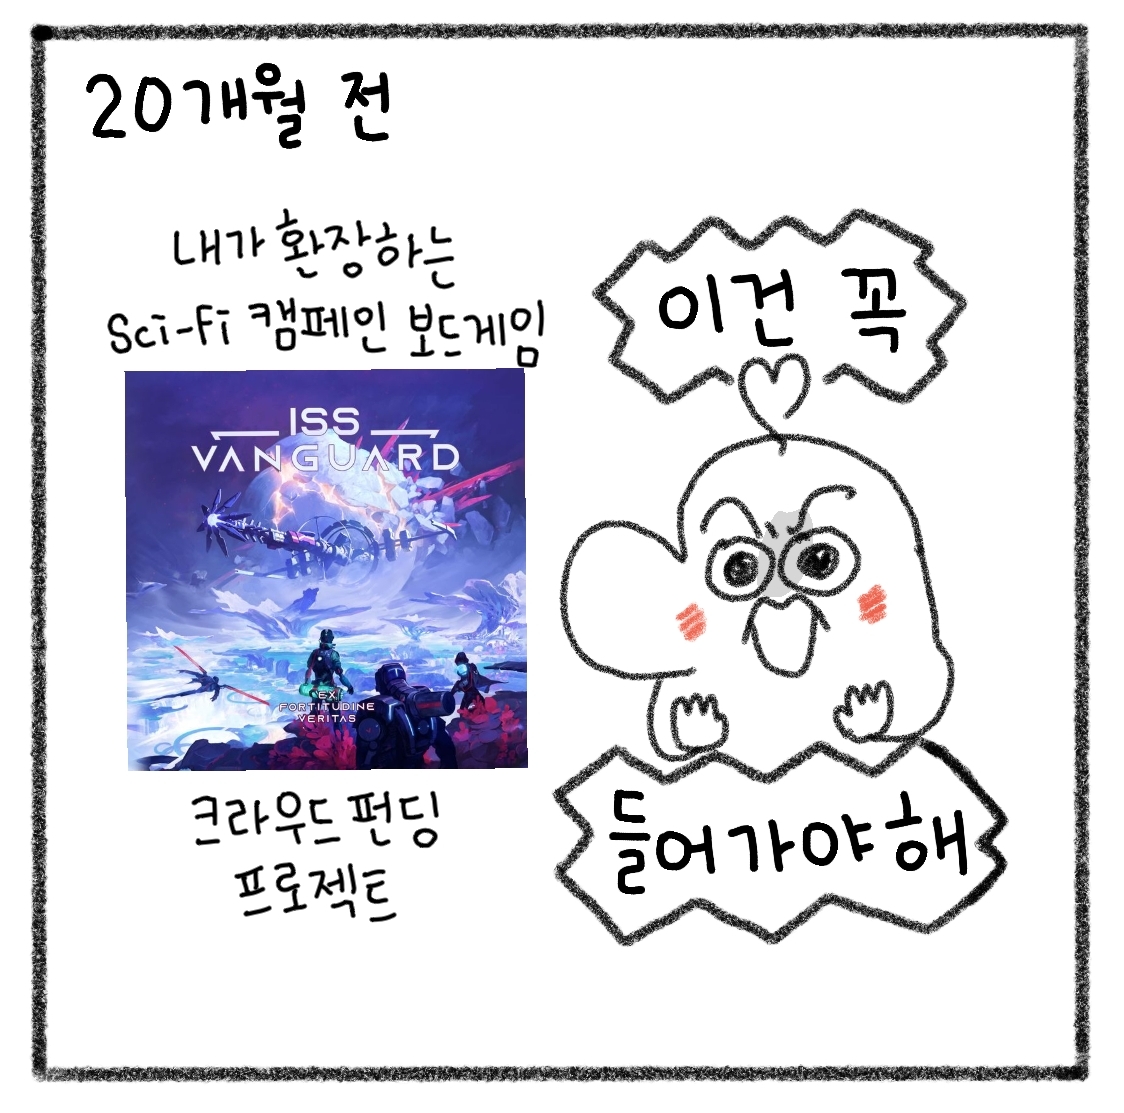 20개월 전
내가 환장하는
Sci-Fi 캠페인 보드게임
ISS
VANGUARD
EX
FORTITUDINE
VERITAS
크라우드 펀딩
프로젝트
이건 꼭
들어가야해